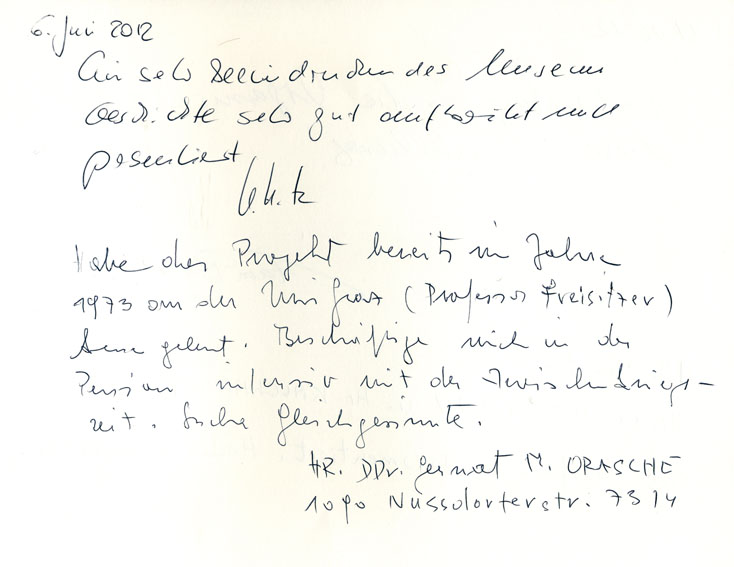 6. Juli 2012
Ein sehr beeindruckendes Museum
Geschichte sehr gut aufbereitet und
präsentiert
Habe das Projekt bereits im Jahre
1973 an der Uni Graz (Professor Freisitzer)
kennen gelernt. Beschäftige mich in der
Pension intensiv mit der Zwischenkriegs-
zeit. Suche Gleichgesinnte.
HR. DDr. Gernot M. ORASCHE
1090 Nussdorferstr. 73/4